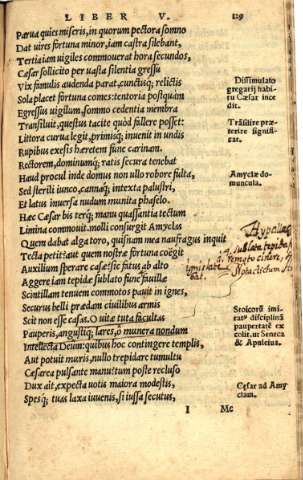 LIBER V. 129
Parua quies miseris, in quorum pectora somno
Dat uires fortuna minor, iam castra silebant,
Tertia iam uigiles commouerat hora secundos,
Cæsar sollicito per uasta silentia gressu
Vix famulis audenda parat, cunctisq; relictis
Sola placet fortuna comes: tentoria postquam
Egressus uigilum somno cedentia membra
Transiluit, questus tacite quòd fallere posset:
Littora curua legit, primisq; inuenit in undis
Rupibus exesis hærentem fune carinam.
Rectorem, dominumq; ratis secura tenebat
Haud procul inde domus non ullo robore fulta,
Sed sterili iunco, cannaq; intexta palustri,
Et latus inuersa nudum munita phaselo.
Hæc Cæsar bis terq; manu quassantia tectum
Limina commouit. molli consurgit Amyclas
Quem dabat alga toro, quisnam mea naufragus inquit
Tecta petit? aut quem nostræ fortuna coëgit
Auxilium sperare casæ? sic fatus ab alto
Aggere iam tepidæ sublato fune fauillæ
Scintillam tenuem commotos pauit in ignes,
Securus belli prædam ciuilibus armis
Scit non esse casas. O uitæ tuta facultas
Pauperis, angustiq; lares, ô munera nondum
Intellecta Deum: quibus hoc contingere templis,
Aut potuit muris, nullo trepidare tumultu
Cæsarea pulsante manu? tum poste recluso
Dux ait, expecta uotis maiora modestis,
Spesq; tuas laxa iuuenis, si iussa secutus,
I Me
Dissimulato
gregarij habi
tu Cæsar ince
dit.
Trāsilire præ-
terire signifi-
cat.
Amyclæ do-
muncula.
Hypallage
sublata tepida
Stoicorū imi-
tatꝰ disciplinā
paupertatē ex
colit. ut Seneca
& Apuleius.
Cæsar ad Amy
clam.